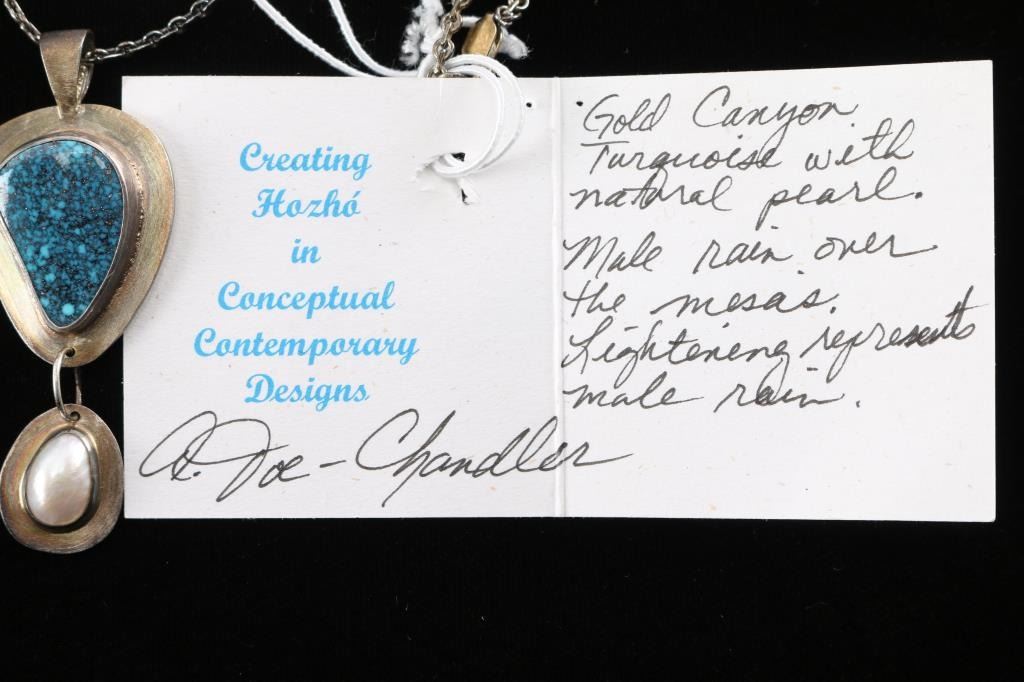 Creating
Hozhó
in
Conceptual
Contemporary
Designs
A. Joe-Chandler
Gold Canyon
Turquoise with
natural pearl.
Male rain over
the mesas.
Lightening represents
male rain.